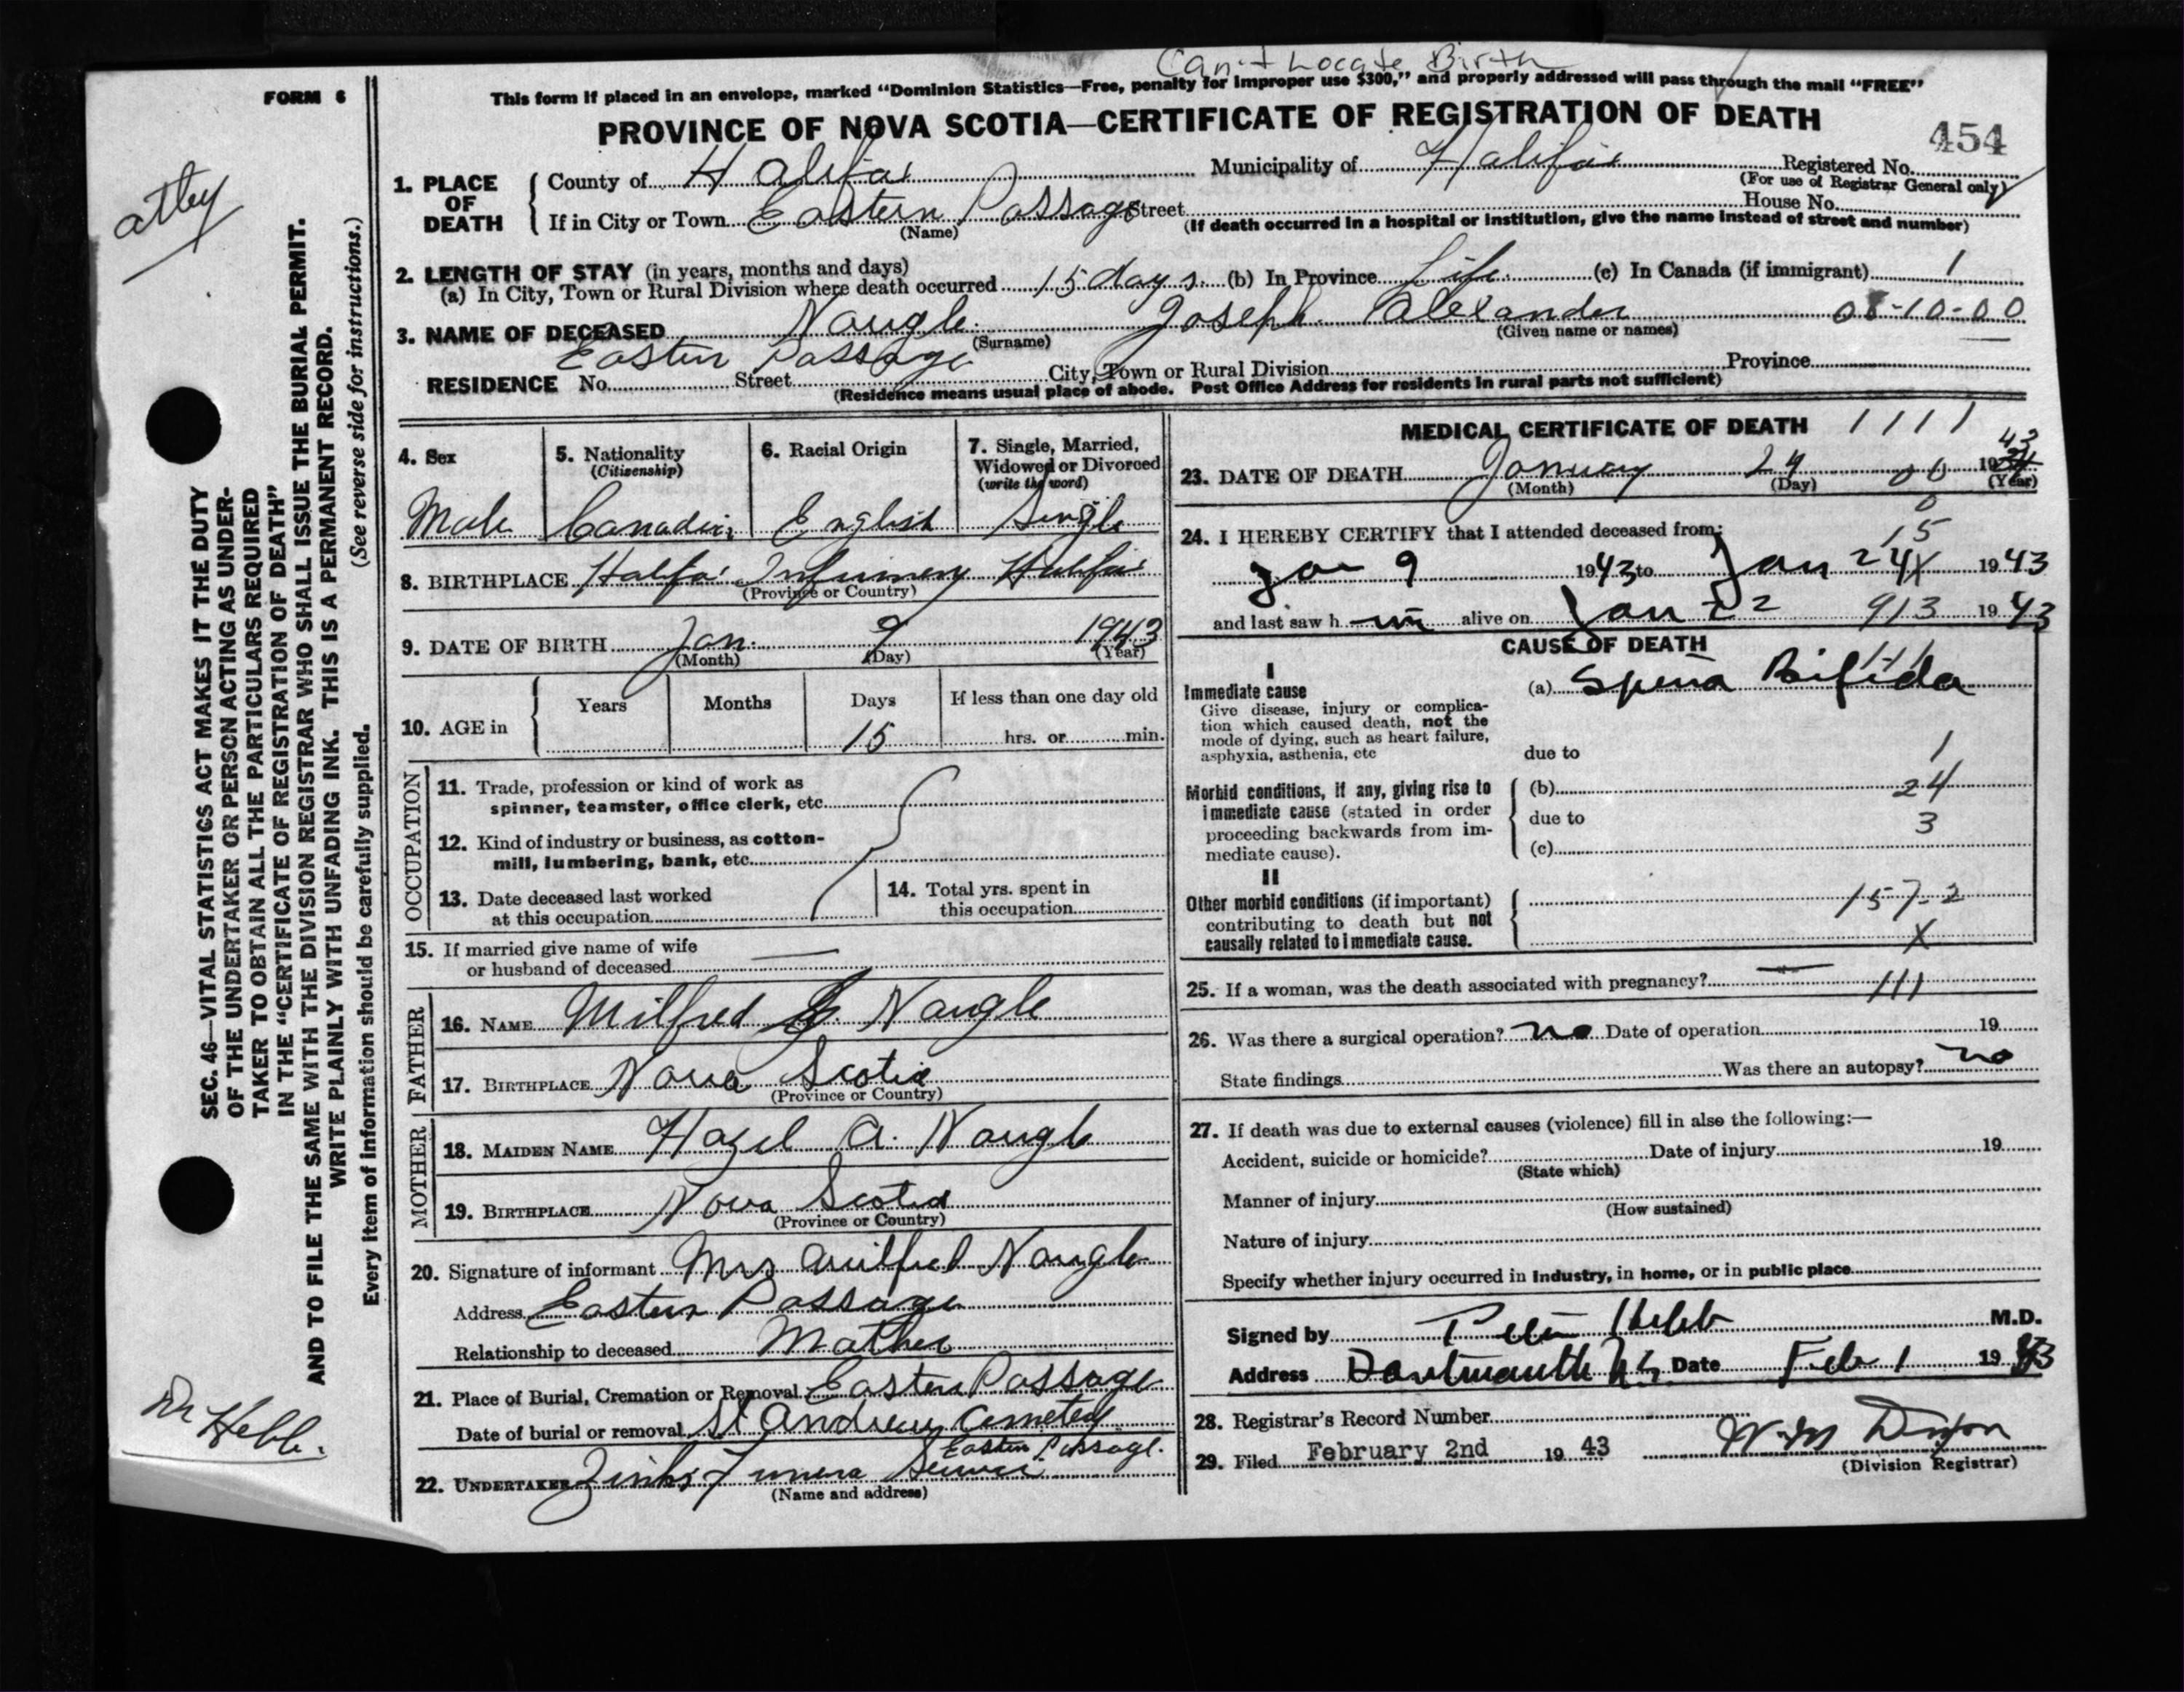 Can't Locate Birth
FORM 6
This form if placed in an envelope, marked "Dominion Statistics—Free, penalty for improper use $300," and properly addressed will pass through the mail "FREE"
PROVINCE OF NOVA SCOTIA—CERTIFICATE OF REGISTRATION OF DEATH
454
1. PLACE OF DEATH
County of Halifax Municipality of Halifax Registered No.
(For use of Registrar General only)
If in City or Town Eastern Passage Street House No.
(Name) (If death occurred in a hospital or institution, give the name instead of street and number)
2. LENGTH OF STAY (in years, months and days)
(a) In City, Town or Rural Division where death occurred 15 days. (b) In Province Life. (c) In Canada (if immigrant) 1
3. NAME OF DECEASED Naugle. Joseph Alexander 08-10-00
(Surname) (Given name or names)
Eastern Passage
RESIDENCE No. Street City, Town or Rural Division Province
(Residence means usual place of abode. Post Office Address for residents in rural parts not sufficient)
4. Sex
Male
5. Nationality
(Citizenship)
Canadian
6. Racial Origin
English
7. Single, Married,
Widowed or Divorced
(write the word)
Single
8. BIRTHPLACE Halifax Infirmary Halifax
(Province or Country)
9. DATE OF BIRTH Jan. 9 1943
(Month) (Day) (Year)
10. AGE in
Years Months Days If less than one day old
15 hrs. or min.
OCCUPATION
11. Trade, profession or kind of work as
spinner, teamster, office clerk, etc
12. Kind of industry or business, as cotton-
mill, lumbering, bank, etc.
13. Date deceased last worked
at this occupation
14. Total yrs. spent in
this occupation
15. If married give name of wife
or husband of deceased —
FATHER
16. NAME Milfred Naugle
17. BIRTHPLACE Nova Scotia
(Province or Country)
MOTHER
18. MAIDEN NAME Hazel A. Naugle
19. BIRTHPLACE Nova Scotia
(Province or Country)
20. Signature of informant Mrs Milfred Naugle
Address Eastern Passage
Relationship to deceased Mother
21. Place of Burial, Cremation or Removal Eastern Passage
Date of burial or removal St Andrews Cemetery
Eastern Passage.
22. UNDERTAKER Zinks Funera Service
(Name and address)
MEDICAL CERTIFICATE OF DEATH 1111
23. DATE OF DEATH January 24 01 1943
(Month) (Day) (Year)
0
24. I HEREBY CERTIFY that I attended deceased from: 15
Jan 9 1943 to Jan 24 X 1943
and last saw h im alive on Jan 22 913 1943
CAUSE OF DEATH
111
I
Immediate cause
Give disease, injury or complica-
tion which caused death, not the
mode of dying, such as heart failure,
asphyxia, asthenia, etc
(a) Spina Bifida
due to 1
Morbid conditions, if any, giving rise to
immediate cause (stated in order
proceeding backwards from im-
mediate cause).
(b) 24
due to 3
(c)
II
Other morbid conditions (if important)
contributing to death but not
causally related to immediate cause.
157-2
X
25. If a woman, was the death associated with pregnancy? — 111
26. Was there a surgical operation? no Date of operation 19
State findings Was there an autopsy? no
27. If death was due to external causes (violence) fill in also the following:—
Accident, suicide or homicide? Date of injury 19
(State which)
Manner of injury
(How sustained)
Nature of injury
Specify whether injury occurred in Industry, in home, or in public place
Signed by Hebb M.D.
Address Dartmouth N.S. Date Feb 1 1943
28. Registrar's Record Number
29. Filed February 2nd 19 43 W. M Dixon
(Division Registrar)
SEC. 46—VITAL STATISTICS ACT MAKES IT THE DUTY
OF THE UNDERTAKER OR PERSON ACTING AS UNDER-
TAKER TO OBTAIN ALL THE PARTICULARS REQUIRED
IN THE "CERTIFICATE OF REGISTRATION OF DEATH"
AND TO FILE THE SAME WITH THE DIVISION REGISTRAR WHO SHALL ISSUE THE BURIAL PERMIT.
WRITE PLAINLY WITH UNFADING INK. THIS IS A PERMANENT RECORD.
(See reverse side for instructions.)
Every item of information should be carefully supplied.
Dr Hebb.